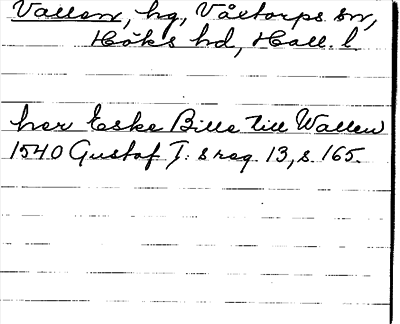 Vallen, hg, Våxtorps sn,
Höks hd, Hall. l.
her Eske Bille till Wallen
1540 Gustaf I:s reg. 13, s. 165.